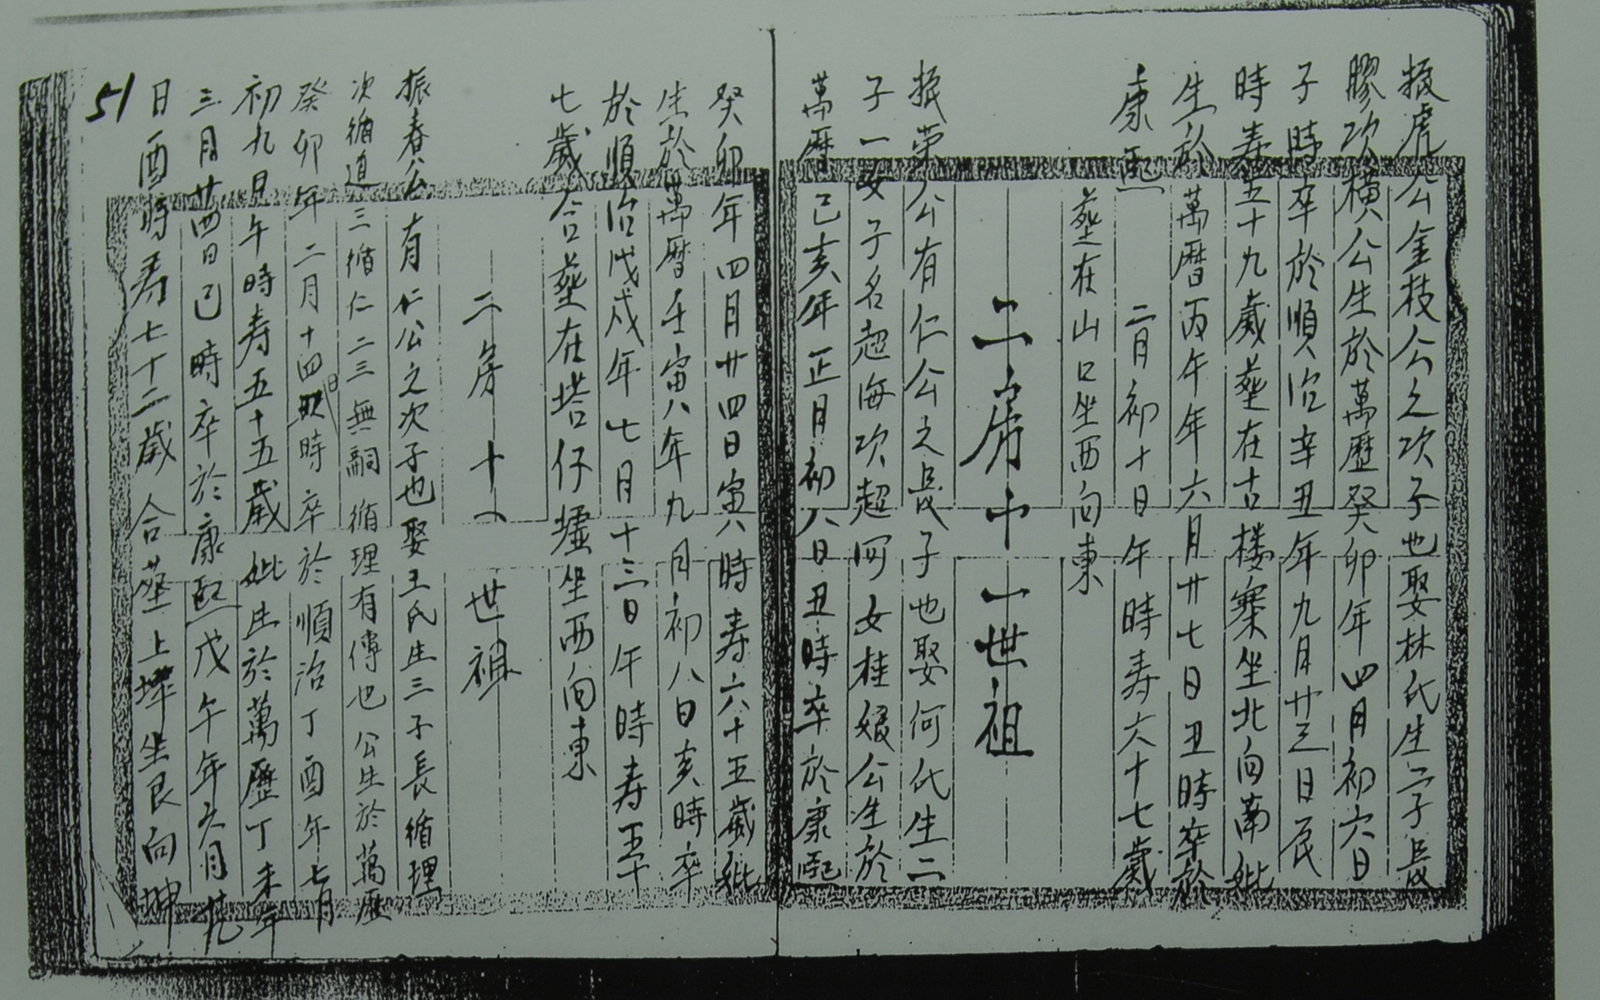 振虎公金枝公之次子也娶林氏生二子長
膠次横公生於萬歷癸卯年四月初六日
子時卒於順治辛丑年九月廿三日辰
時寿五十九歲塟在古樓寨坐北向南妣
生於萬曆丙午年六月廿七日丑時卒於
康熙 二月初十日午時寿六十七歲
塟在山口坐西向東
二房十一世祖
振荣公有仁公之長子也娶何氏生二
子一女子名超海次超河女桂娘公生於
萬曆己亥年正月初八日丑時卒於康熙
癸卯年四月廿四日寅時寿六十五歲妣
生於萬曆壬寅八年九月初八日亥時卒
於順治戊戌年七月十三日午時寿五十
七歲合塟在塔仔墟坐西向東
二房十一世祖
振春公有仁公之次子也娶王氏生三子長循理
次循道三循仁二三無嗣循理有傳也公生於萬歷
癸卯年二月十四日時卒於順治丁酉年七月
初九日午時寿五十五歲妣生於萬歷丁未年
三月廿四日巳時卒於康熙戊午年六月廿
日酉時寿七十二歲合塟上坐艮向坤
51